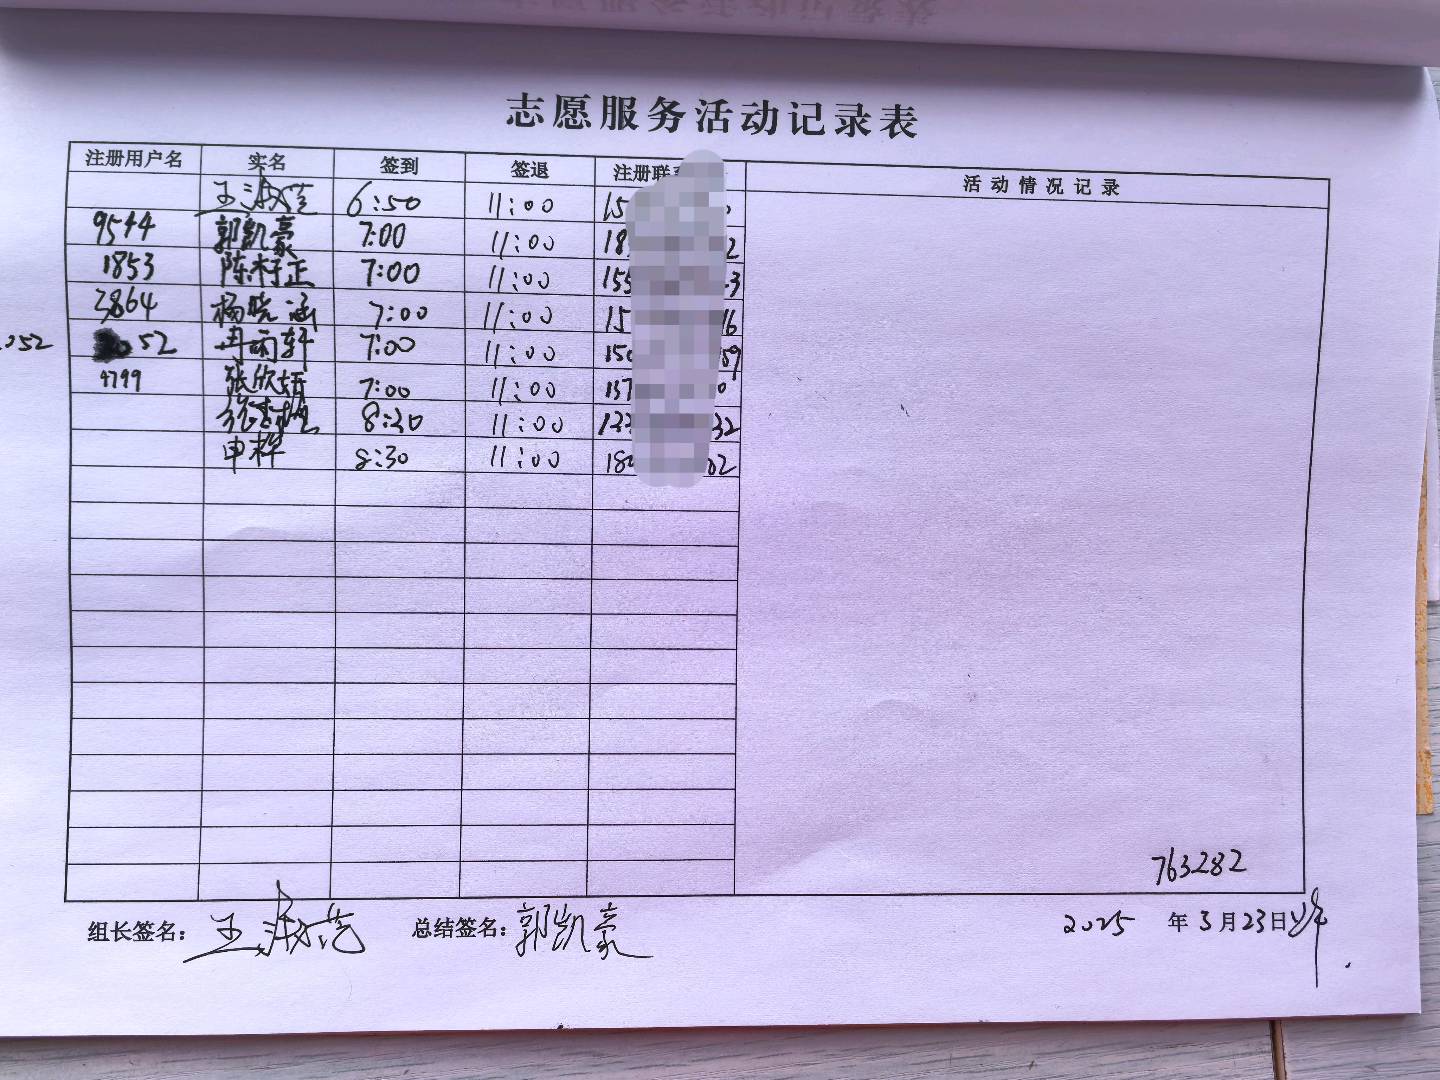 志愿服务活动记录表
注册用户名 实名 签到 签退 注册联系 活动情况记录
王淑范 6:50 11:00 15
9544 郭凯豪 7:00 11:00 18 2
1853 陈籽正 7:00 11:00 155 3
3864 杨晓涵 7:00 11:00 15 16
052 52 冉雨轩 7:00 11:00 150 59
4799 张欣妍 7:00 11:00 157 0
8:30 11:00 133 32
申梓 8:30 11:00 180 02
763282
组长签名: 王淑范 总结签名: 郭凯豪 2025 年 3 月 23 日